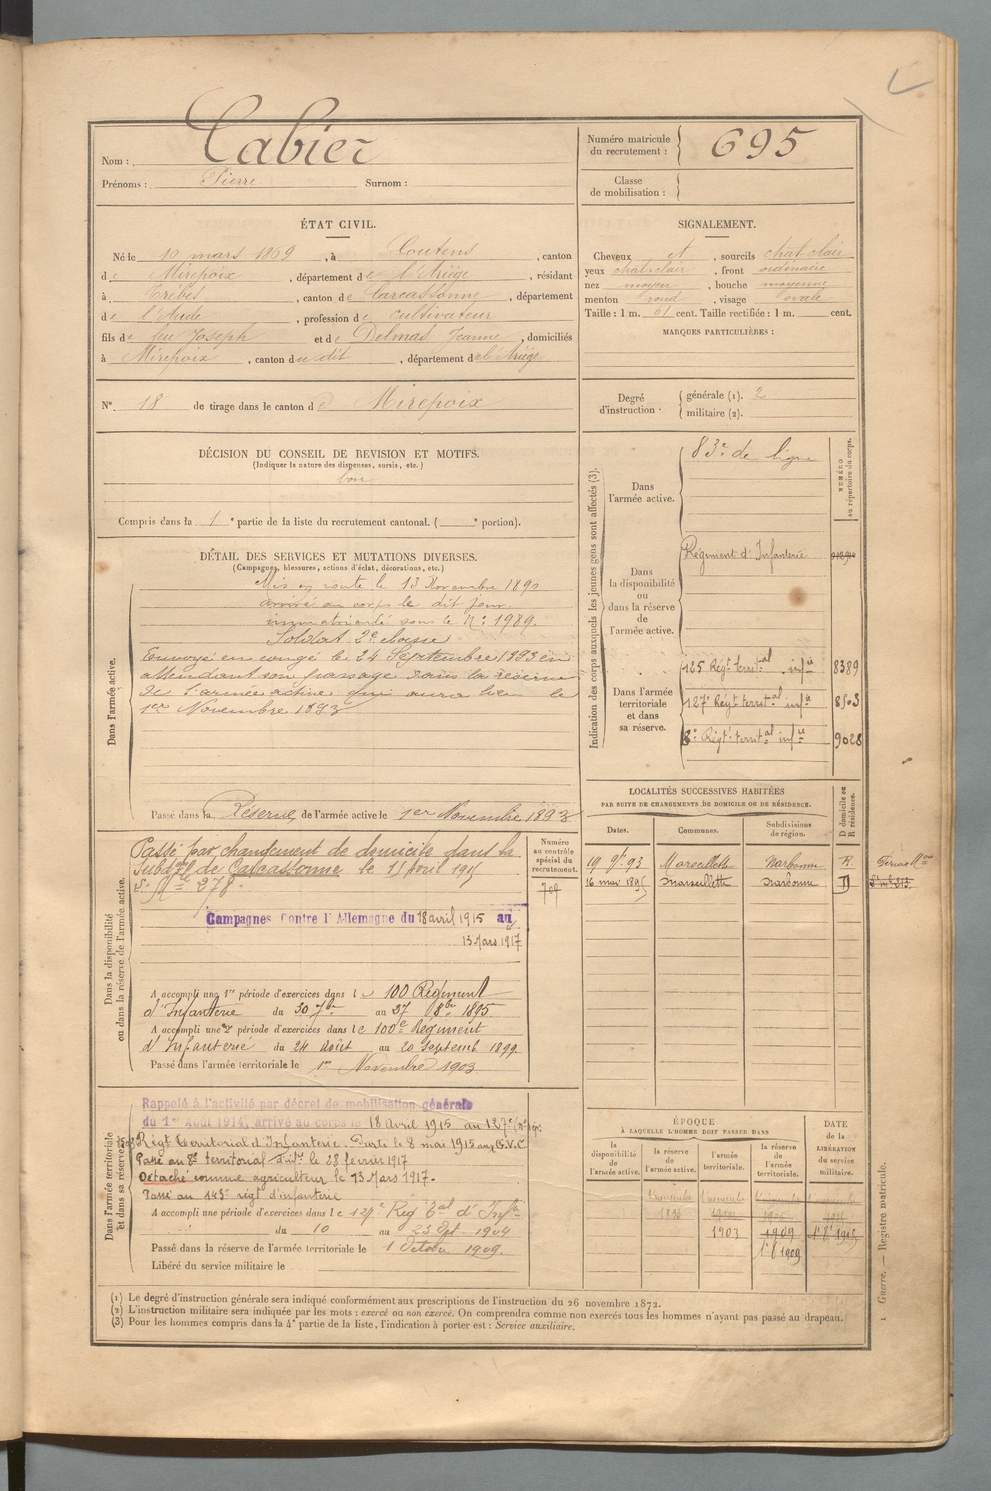 Nom : Cabier
Prénoms : Pierre Surnom :
Numéro matricule du recrutement : 695
Classe de mobilisation :
ÉTAT CIVIL.
Né le 10 mars 1869, à Coutens, canton
de Mirepoix, département de l'Ariège, résidant
à Trèbes, canton de Carcassonne, département
de l'Aude, profession de cultivateur
fils de feu Joseph et de Delmas Jeanne, domiciliés
à Mirepoix, canton du dit, département de l'Ariège.
N° 18 de tirage dans le canton de Mirepoix
SIGNALEMENT.
Cheveux et, sourcils chat. clair
yeux chat. clair, front ordinaire
nez moyen, bouche moyenne
menton rond, visage ovale
Taille : 1 m. 61 cent. Taille rectifiée : 1 m. cent.
MARQUES PARTICULIÈRES :
Degré d'instruction. générale (1). 2
militaire (2).
DÉCISION DU CONSEIL DE REVISION ET MOTIFS.
(Indiquer la nature des dispenses, sursis, etc.)
bon
Compris dans la 1e partie de la liste du recrutement cantonal. ( e portion).
DÉTAIL DES SERVICES ET MUTATIONS DIVERSES.
(Campagnes, blessures, actions d'éclat, décorations, etc.)
Dans l'armée active.
Mis en route le 13 Novembre 1890
arrivé au corps le dit jour.
immatriculé sous le N° 1989.
Soldat 2e classe
Envoyé en congé le 24 Septembre 1893 en
attendant son passage dans la réserve
de l'armée active qui aura lieu le
1er Novembre 1893
Passé dans la Réserve de l'armée active le 1er Novembre 1893
Indication des corps auxquels les jeunes gens sont affectés (3).
NUMÉRO au répertoire du corps.
Dans l'armée active.
83e de ligne
Dans la disponibilité ou dans la réserve de l'armée active.
Régiment d'Infanterie
Dans l'armée territoriale et dans sa réserve.
125 Régt territal infie 8389
127e Régt territal infie 8503
8e Régt territal infie 9028
LOCALITÉS SUCCESSIVES HABITÉES
PAR SUITE DE CHANGEMENTS DE DOMICILE OU DE RÉSIDENCE.
Dates. Communes. Subdivisions de région. D domicile ou R résidence.
19 9bre 93 Marseillette Narbonne R.
16 mai 1895 Marseillette Narbonne D
Dans la disponibilité ou dans la réserve de l'armée active.
Numéro au contrôle spécial du recrutement.
Passé par changement de domicile dans la
Subdon de Carcassonne le 15 Avril 1915
Campagnes Contre l'Allemagne du 18 avril 1915 au
13 Mars 1917
A accompli une 1re période d'exercices dans le 100 Régiment
d'Infanterie du 30 7bre au 27 8bre 1895
A accompli une 2e période d'exercices dans le 100e Régiment
d'Infanterie du 24 août au 20 Septemb 1899.
Passé dans l'armée territoriale le 1er Novembre 1903
Dans l'armée territoriale et dans sa réserve.
Rappelé à l'activité par décret de mobilisation générale
du 1er Août 1914, arrivé au corps le 18 Avril 1915 au 127e
Régt Territorial d'Infanterie. Parti le 8 mai 1915 aux G.V.C.
Passé au 8e territorial d'infie le 28 février 1917
Détaché comme agriculteur le 13 Mars 1917.
Passé au 143e régt d'infanterie
A accompli une période d'exercices dans le 127e Rég Tal d'Infie
du 10 au 23 Spt 1904
Passé dans la réserve de l'armée territoriale le 1 Octobre 1909.
Libéré du service militaire le
ÉPOQUE
À LAQUELLE L'HOMME DOIT PASSER DANS
la disponibilité de l'armée active. la réserve de l'armée active. l'armée territoriale. la réserve de l'armée territoriale. DATE de la LIBÉRATION du service militaire.
1903 1909
(1) Le degré d'instruction générale sera indiqué conformément aux prescriptions de l'instruction du 26 novembre 1872.
(2) L'instruction militaire sera indiquée par les mots : exercé ou non exercé. On comprendra comme non exercés tous les hommes n'ayant pas passé au drapeau.
(3) Pour les hommes compris dans la 4e partie de la liste, l'indication à porter est : Service auxiliaire.
Guerre. — Registre matricule.